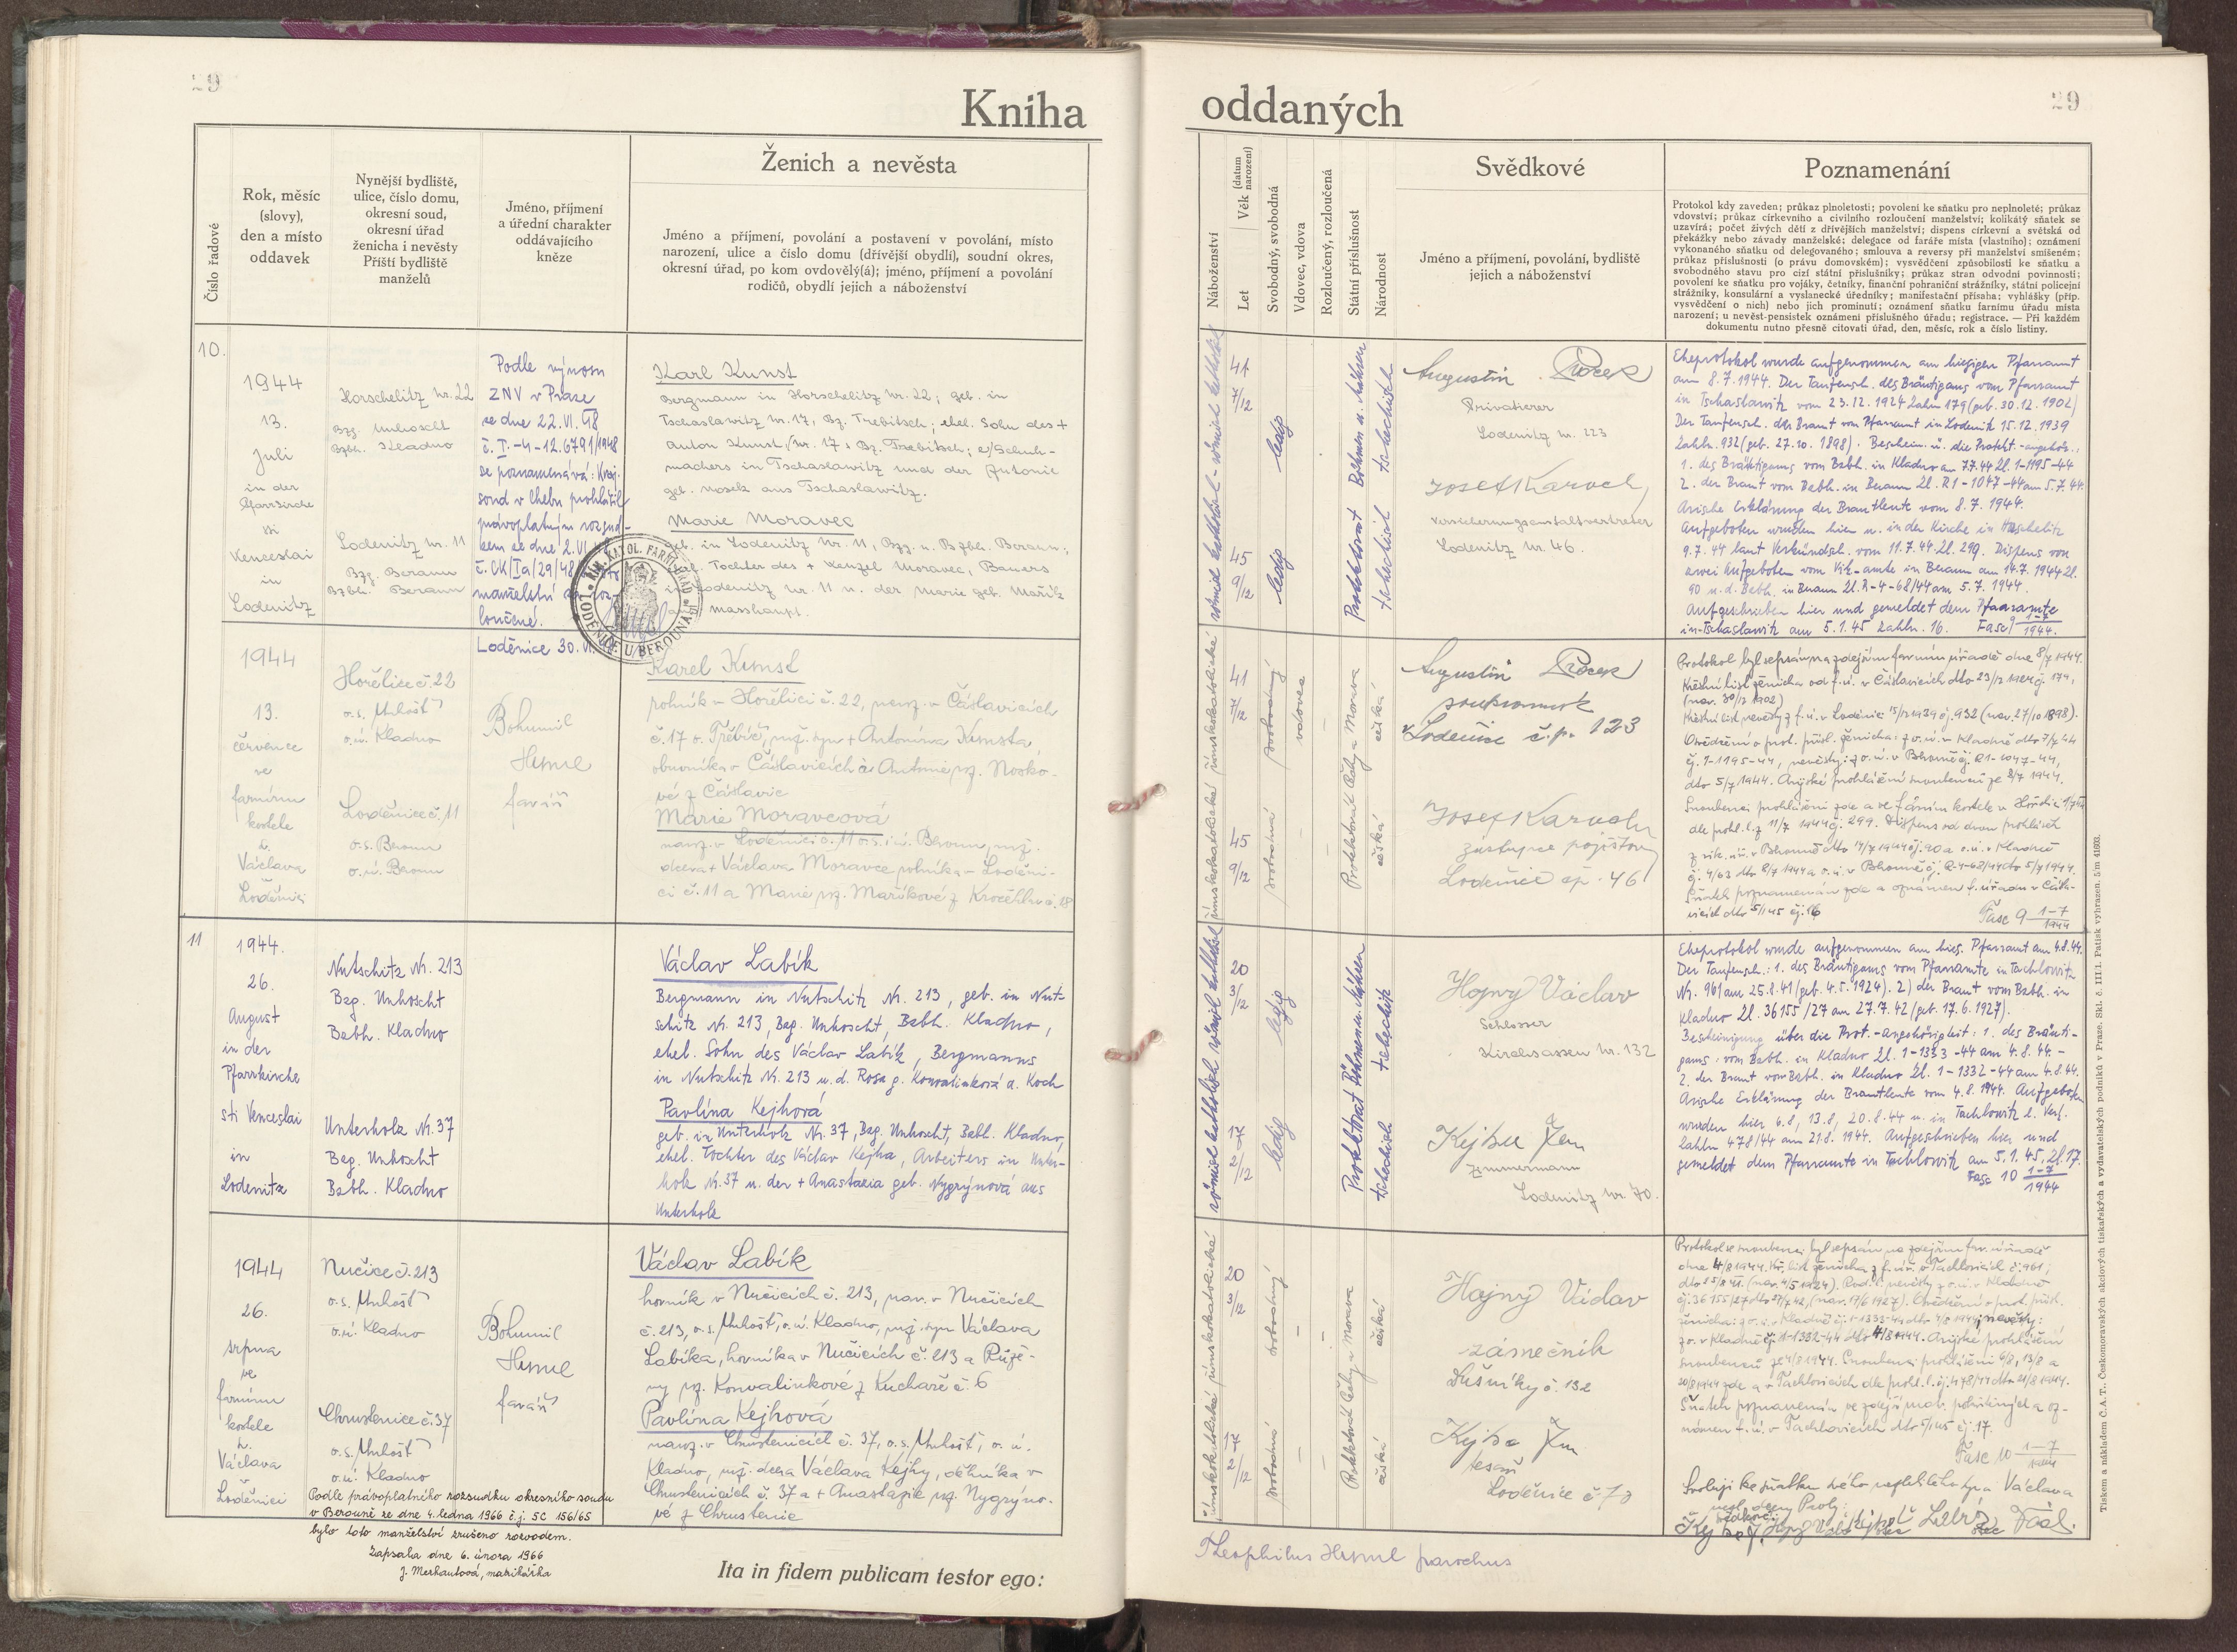 29
Kniha
Číslo řadové
Rok, měsíc
(slovy),
den a místo
oddavek
Nynější bydliště,
ulice, číslo domu,
okresní soud,
okresní úřad
ženicha i nevěsty
Příští bydliště
manželů
Jméno, příjmení
a úřední charakter
oddávajícího
kněze
Ženich a nevěsta
Jméno a příjmení, povolání a postavení v povolání, místo
narození, ulice a číslo domu (dřívější obydlí), soudní okres,
okresní úřad, po kom ovdověl(á); jméno, příjmení a povolání
rodičů, obydlí jejich a náboženství
10.
1944
13.
Juli
in der
Pfarrkirche
sti
Venceslai
in
Lodenitz
Horschelitz Nr. 22
Bzg. Unhoscht
Bzbh. Kladno
Lodenitz Nr. 11
Bzg. Beraun
Bzbh. Beraun
Podle výnosu
ZNV v Praze
ze dne 22.VI.48
č. I.-4-12.6791/1948
se poznamenává: Kraj.
soud v Chebu prohlásil
právoplatným rozsud-
kem ze dne 2.VI.
č. CK Ia/29/48
manželství za roz-
loučené.
Loděnice 30.
Karl Kunst
Bergmann in Horschelitz Nr. 22; geb. in
Tschaslawitz Nr. 17, Bz. Trebitsch; ehel. Sohn des +
Anton Kunst, Nr. 17, Bz. Trebitsch; Schuh-
machers in Tschaslawitz und der Antonie
geb. Nosek aus Tschaslawitz.
Marie Moravec
geb. in Lodenitz Nr. 11, Bzg. u. Bzbh. Beraun;
ehel. Tochter des + Wenzel Moravec, Bauers
in Lodenitz Nr. 11 u. der Marie geb. Mařík
ŘÍM. KATOL. FARNÍ ÚŘAD
LODĚNICE U BEROUNA
1944
13.
července
ve
farním
kostele
sv.
Václava
Loděnici
Hořelice č. 22
o.s. Unhošť
o.ú. Kladno
Loděnice č. 11
o.s. Beroun
o.ú. Beroun
Bohumil
Hemel
farář
Karel Kunst
rolník v Hořelici č. 22, naroz. v Čáslavicích
č. 17 o. Třebíč, mž. syn + Antonína Kunsta,
obuvníka v Čáslavicích a Antonie roz. Nosko-
vé z Čáslavic
Marie Moravcová
naroz. v Loděnici č. 11 o.s. i ú. Beroun, mž.
dcera + Václava Moravce rolníka v Loděni-
ci č. 11 a Marie roz. Maříkové z Kročehlav č. 18
11
1944.
26.
August
in der
Pfarrkirche
sti Venceslai
in
Lodenitz
Nutschitz Nr. 213
Bzg. Unhoscht
Bzbh. Kladno
Unterholz Nr. 37
Bzg. Unhoscht
Bzbh. Kladno
Václav Labík
Bergmann in Nutschitz Nr. 213, geb. in Nut-
schitz Nr. 213, Bzg. Unhoscht, Bzbh. Kladno,
ehel. Sohn des Václav Labík, Bergmanns
in Nutschitz Nr. 213 u. d. Rosa g. Konvalinková a. Koch
Pavlína Kejhová
geb. in Unterholz Nr. 37, Bzg. Unhoscht, Bzbh. Kladno,
ehel. Tochter des Václav Kejha, Arbeiters in Unter-
holz Nr. 37 u. der + Anastazia geb. Nygrýnová aus
Unterholz
1944
26.
srpna
ve
farním
kostele
sv.
Václava
Loděnici
Nučice č. 213
o.s. Unhošť
o.ú. Kladno
Chrustenice č. 37
o.s. Unhošť
o.ú. Kladno
Bohumil
Hemel
farář
Václav Labík
horník v Nučicích č. 213, nar. v Nučicích
č. 213, o.s. Unhošť, o.ú. Kladno, mž. syn Václava
Labíka, horníka v Nučicích č. 213 a Růže-
ny roz. Konvalinkové z Kuchaře č. 6
Pavlína Kejhová
naroz. v Chrustenicích č. 37, o.s. Unhošť, o. ú.
Kladno, mž. dcera Václava Kejhy, dělníka v
Chrustenicích č. 37 a + Anastazie roz. Nygrýno-
vé z Chrustenic
Podle právoplatného rozsudku okresního soudu
v Berouně ze dne 4. ledna 1966 č.j. 5C 156/65
bylo toto manželství zrušeno rozvodem.
Zapsala dne 6. února 1966
J. Merhautová, matrikářka
Ita in fidem publicam testor ego:
oddaných
29
Náboženství
Let
Věk (datum narození)
Svobodný, svobodná
Vdovec, vdova
Rozloučený, rozloučená
Státní příslušnost
Národnost
Svědkové
Jméno a příjmení, povolání, bydliště
jejich a náboženství
Poznamenání
Protokol kdy zaveden; průkaz plnoletosti; povolení ke sňatku pro neplnoleté; průkaz
vdovství; průkaz církevního a civilního rozloučení manželství; kolikátý sňatek se
uzavírá; počet živých dětí z dřívějších manželství; dispens církevní a světská od
překážky nebo závady manželské; delegace od faráře místa (vlastního); oznámení
vykonaného sňatku od delegovaného; smlouva a reversy při manželství smíšeném;
průkaz příslušnosti (o právu domovském); vysvědčení způsobilosti ke sňatku a
svobodného stavu pro cizí státní příslušníky; průkaz stran odvodní povinnosti;
povolení ke sňatku pro vojáky, četníky, finanční pohraniční strážníky, státní policejní
strážníky, konsulární a vyslanecké úředníky; manifestační přísaha; vyhlášky (příp.
vysvědčení o nich) nebo jich prominutí; oznámení sňatku farnímu úřadu místa
narození; u nevěst-pensistek oznámení příslušného úřadu; registrace. — Při každém
dokumentu nutno přesně citovati úřad, den, měsíc, rok a číslo listiny.
römisch katholisch - römisch katholisch
41
7/12
45
9/12
ledig
ledig
Protektorat Böhmen u. Mähren
tschechisch tschechisch
Augustin Rocek
Privatierer
Lodenitz nr. 223
Josef Karvel
Versicherungsanstaltsvertreter
Lodenitz Nr. 46.
Eheprotokol wurde aufgenommen am hiesigen Pfarramt
am 8.7.1944. Der Taufensch. des Bräutigams vom Pfarramt
in Tschaslawitz vom 23.12.1924 Zahln 179 (geb. 30.12.1902)
Der Taufensch. der Braut von Pfarramt in Lodenitz 15.12.1939
Zahln. 932 (geb. 27.10.1898). Beschein. ü. die Protekt.-angehör.:
1. des Bräutigams vom Bzbh. in Kladno am 7.7.44 Zl. 1-1195-44
2. der Braut vom Bzbh. in Beraun Zl. R1-1047-44 am 5.7.44.
Arische Erklärung der Brautleute vom 8.7.1944.
Aufgeboten wurden hier u. in der Kirche in Horschelitz
9.7.44 laut Verkündsch. vom 11.7.44 Zl. 299. Dispens von
zwei Aufgeboten vom Vik-amte in Beraun am 14.7.1944 Zl.
90 u. d. Bzbh. in Beraun Zl. R-4-68/44 am 5.7.1944.
Aufgeschrieben hier und gemeldet dem Pfarramte
in Tschaslawitz am 5.1.45 Zahln. 16. Fasc 9 1-7/1944.
římskokatolické římskokatolické
41
7/12
45
9/12
svobodný
svobodná
vdovec
Protektorát Čechy a Morava
česká česká
Augustin Rocek
soukromník
Loděnice č.p. 123
Josef Karvel
zástupce pojišťovny
Loděnice čp. 46
Protokol byl sepsán na zdejším farním úřadě dne 8/7 1944.
Křestní list ženicha od f.ú. v Čáslavicích dto 23/12 1924 čj. 179,
(nar. 30/12 1902)
Křestní list nevěsty z f.ú. v Loděnici 15/12 1939 čj. 932 (nar. 27/10 1898).
Osvědčení o prot. přísl. ženicha: z o.ú. v Kladně dto 7/7 44
čj. 1-1195-44, nevěsty: z o.ú. v Berouně čj. R1-1047-44,
dto 5/7 1944. Arijské prohlášení snoubenců ze 8/7 1944.
Snoubenci prohlášeni zde a ve farním kostele v Hořelici
dle prohl. l. z 11/7 1944 čj. 299. Dispens od dvou prohlášek
z vik. úř. v Berouně dto 14/7 1944 čj. 90 a o.ú. v Kladně
Sňatek poznamenán zde a oznámen f. úřadu v Čásla-
vicích dto 5/1 45 čj. 16
Fasc 9 1-7/1944
römisch katholisch römisch katholisch
20
3/12
17
2/12
ledig
ledig
Protektorat Böhmen u. Mähren
tschechisch tschechisch
Hajný Václav
Schlosser
Kirchsassen Nr. 132
Kejha Jan
Zimmermann
Lodenitz Nr. 70.
Eheprotokol wurde aufgenommen am hies. Pfarramt am 4.8.44.
Der Taufensch.: 1. des Bräutigams vom Pfarramte in Tachlowitz
Nr. 961 am 25.8.41 (geb. 4.5.1924). 2) der Braut vom Bzbh. in
Kladno Zl. 36155/27 am 27.7.42 (geb. 17.6.1927).
Bescheinigung über die Prot.-angehörigkeit: 1. des Bräuti-
gams: vom Bzbh. in Kladno Zl. 1-1333-44 am 4.8.44. -
2. der Braut vom Bzbh. in Kladno Zl. 1-1332-44 am 4.8.44.
Arische Erklärung der Brautleute vom 4.8.1944. Aufgeboten
wurden hier 6.8, 13.8, 20.8.44 u. in Tachlowitz l. Verf.
Zahln 478/44 am 21.8.1944. Aufgeschrieben hier und
gemeldet dem Pfarramte in Tachlowitz am 5.1.45, Zl. 17.
Fasc 10 1-7/1944
římskokatolické římskokatolické
20
3/12
17
2/12
svobodný
svobodná
Protektorát Čechy a Morava
česká česká
Hajný Václav
zámečník
Dušníky č. 132
Kejha Jan
tesař
Loděnice č. 70
Protokol se snoubenci byl sepsán na zdejším far. úřadě
dne 4/8 1944. Kř. list ženicha z f. úř. v Tachlovicích č. 961,
dto 25/8 41. (nar. 4/5 1924). Rod. l. nevěsty z o.ú. v Kladně
čj. 36155/27 dto 27/7 42, (nar. 17/6 1927). Osvědčení o prot. přísl.
ženicha: z o.ú. v Kladně čj. 1-1333-44 dto 4/8 1944; nevěsty:
z o. v Kladně čj. 1-1332-44 dto 4/8 1944. Arijské prohlášení
snoubenců ze 4/8 1944. Snoubenci prohlášeni 6/8, 13/8 a
20/8 1944 zde a v Tachlovicích dle prohl. l. čj. 478/44 dto 21/8 1944.
Sňatek poznamenán ve zdejší mat. pokřtěných a oz-
námen f. ú. v Tachlovicích dto 5/1 45 čj. 17.
Fasc 10 1-7/1944
Svoluji ke sňatku mého nezletilého syna Václava
Theophilus Hemel parochus
Tiskem a nákladem Č.A.T., Českomoravských akciových tiskařských a vydavatelských podniků v Praze. Skl. č. III/1. Patisk vyhrazen. 5/m 41603.